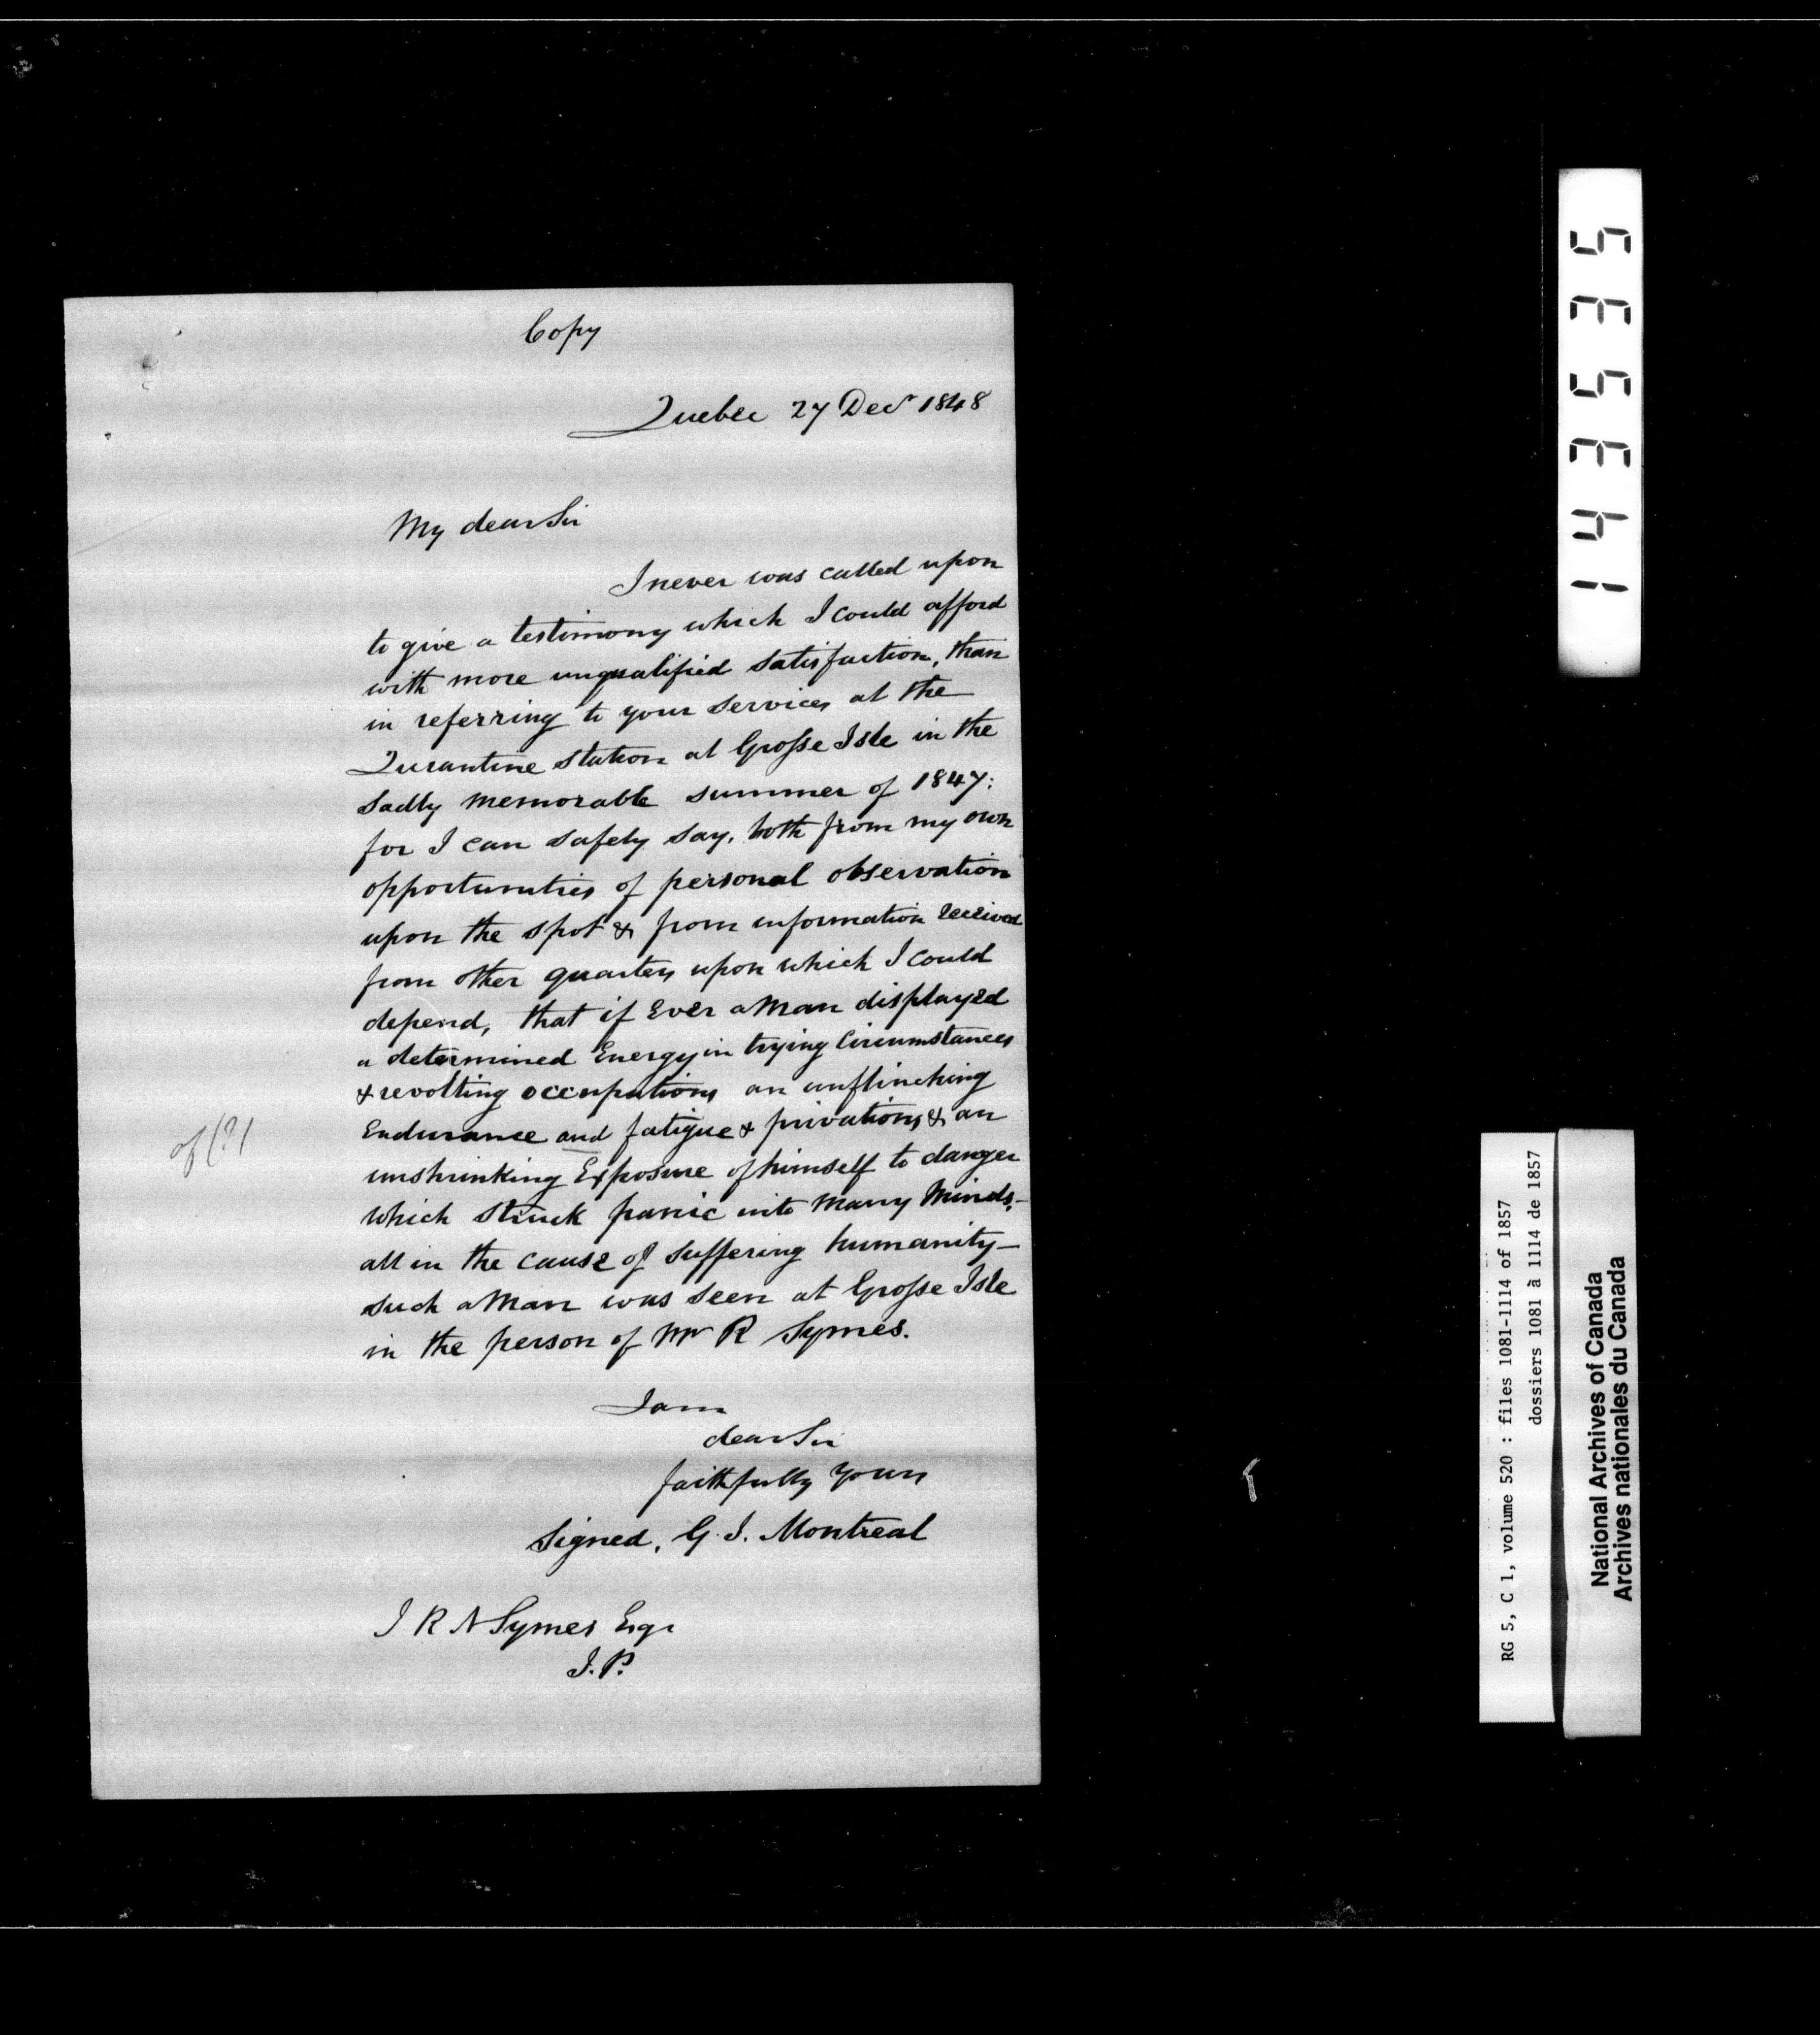 Copy
Quebec 27 Decr 1848
My dear Sir
I never was called upon
to give a testimony which I could afford
with more unqualified satisfaction, than
in referring to your services at the
Qurantine station at Grosse Isle in the
sadly memorable summer of 1847:
for I can safely say, both from my own
opportunities of personal observation
upon the spot & from information received
from other quarters upon which I could
depend, that if Ever a Man displayed
a determined Energy in trying Circumstances
& revolting occupations an unflinching
Endurance and fatigue & privations & an
of (?)
unshrinking Exposure of himself to danger
which struck panic into Many Minds,—
all in the cause of suffering humanity—
such a Man was seen at Grosse Isle
in the person of Mr R Symes.
I am
dear Sir
faithfully Yours
Signed, G. J. Montreal
J R N Symes Esqr
J.P.
143535
RG 5, C 1, volume 520 : files 1081-1114 of 1857
dossiers 1081 à 1114 de 1857
National Archives of Canada
Archives nationales du Canada